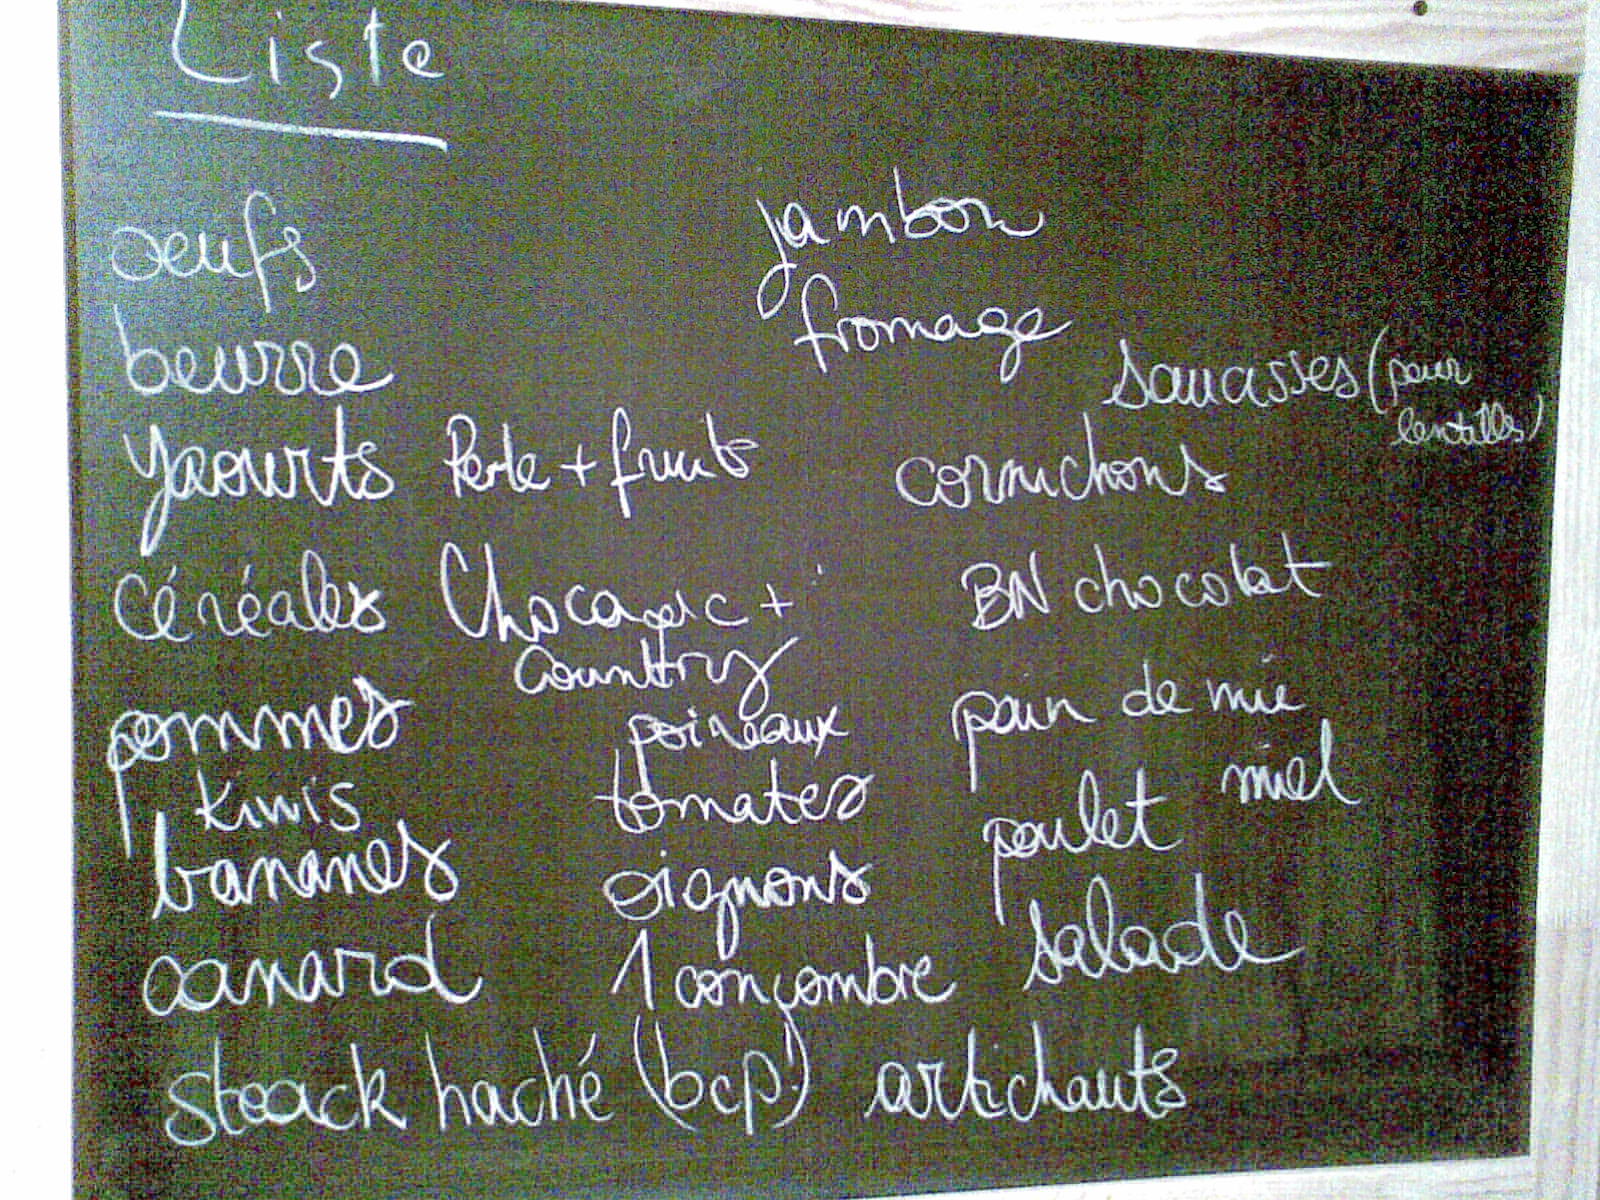 Liste
oeufs
beurre
yaourts Perle + fruits
céréales Chocapic +
Country
pommes
kiwis
bananes
canard
steack haché (bcp!)
poireaux
tomates
oignons
1 conçombre
artichauts
jambon
fromage
sauasses (pour
lentilles)
cornichons
BN chocolat
pain de mie
miel
poulet
salade